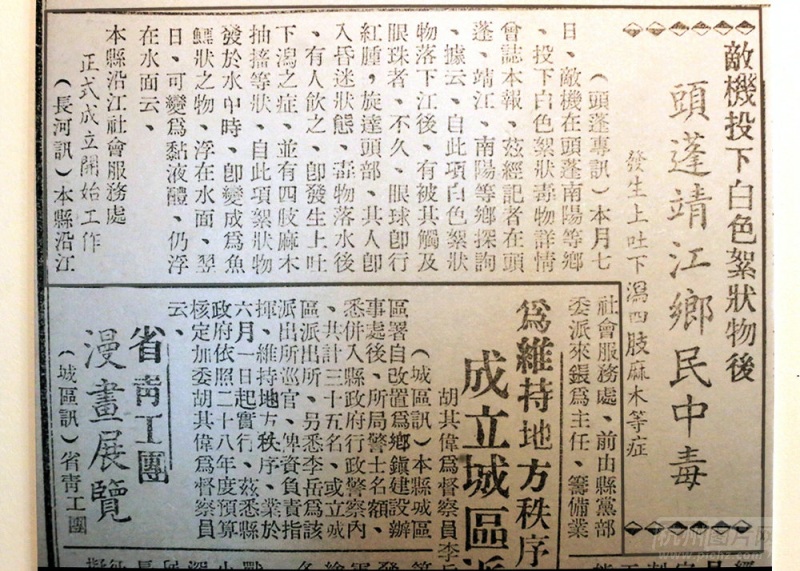 敵機投下白色絮狀物後
頭蓬靖江鄉民中毒
發生上吐下瀉四肢麻木等症
（頭蓬專訊）本月七
日、敵機在頭蓬南陽等鄉
、投下白色絮狀毒物詳情
曾誌本報、茲經記者在頭
蓬、靖江、南陽等鄉探詢
、據云、自此項白色絮狀
物落下江後、有被其觸及
眼珠者、不久、眼球卽行
紅腫，旋達頭部、其人卽
入昏迷狀態、毒物落水後
、有人飲之、卽發生上吐
下瀉之症、並有四肢麻木
抽搐等狀、自此項絮狀物
發於水中時、卽變成爲魚
鰾狀之物、浮在水面、翌
日、可變爲黏液體、仍浮
在水面云、
本縣沿江社會服務處
正式成立開始工作
（長河訊）本縣沿江
社會服務處、前由縣黨部
委派來鍰爲主任、籌備業
爲維持地方秩序
成立城區派
胡其偉爲督察員李
（城區訊）本縣城區
區署自改置爲鄉鎮建設辦
事處後、所局警士名額、
悉併入縣政府行政警察內
、共計三十五名、或立城
區派出所、另悉李岳爲該
派出所巡官、俾資負責指
揮、維持地方秩序、業於
六月一日起實行、茲悉縣
政府依照二十八年度預算
核定加委胡其偉爲督察員
云、
省靑工團
漫畫展覽
（城區訊）省靑工團